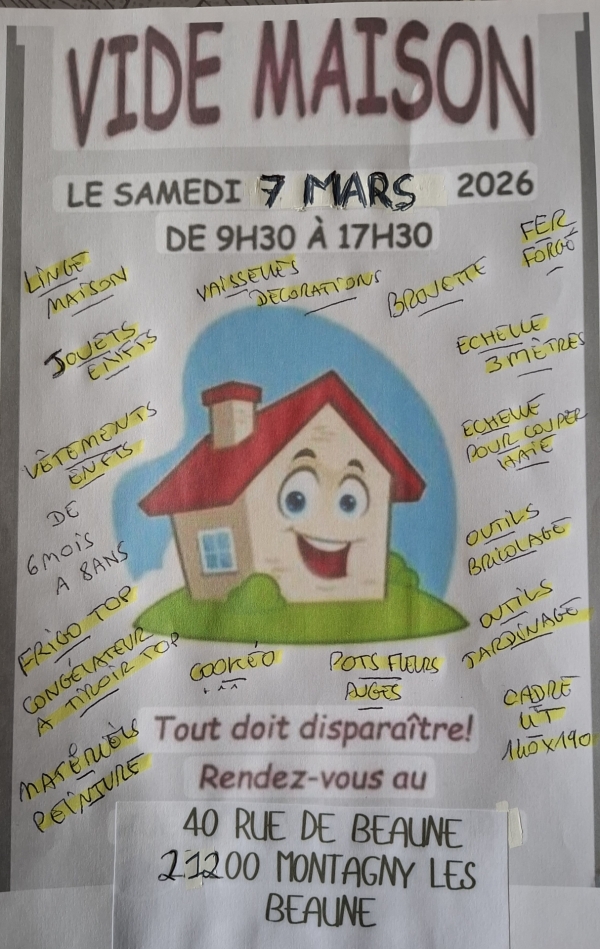 VIDE MAISON
LE SAMEDI 7 MARS 2026
DE 9H30 À 17H30
LINGE
MAISON
VAISSELLES
DECORATIONS
BROUETTE
FER
FORGÉ
JOUETS
ENFTS
ECHELLE
3 MÈTRES
VÊTEMENTS
ENFTS
DE
6 MOIS
A 8ANS
ECHELLE
POUR COUPER
HAIE
OUTILS
BRICOLAGE
OUTILS
JARDINAGE
FRIGO TOP
CONGÉLATEUR
A TIROIR TOP
COOKÉO
POTS FLEURS
AUGES
CADRE
LIT
140X190
MATÉRIELS
PEINTURE
Tout doit disparaître!
Rendez-vous au
40 RUE DE BEAUNE
21200 MONTAGNY LES
BEAUNE